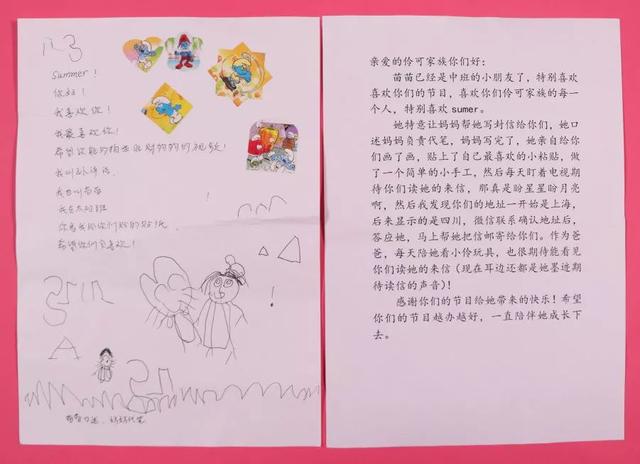 Summer!
你好!
我喜欢你!
我最喜欢你!
希望你能
我叫
我也叫苗苗
我
希望你们会喜欢!
苗苗口述,妈妈代笔
亲爱的伶可家族你们好:
苗苗已经是中班的小朋友了,特别喜欢
喜欢你们的节目,喜欢你们伶可家族的每一
个人,特别喜欢 sumer。
她特意让妈妈帮她写封信给你们,她口
述妈妈负责代笔,妈妈写完了,她亲自给你
们画了画,贴上了自己最喜欢的小粘贴,做
了一个简单的小手工,然后每天盯着电视期
待你们读她的来信,那真是盼星星盼月亮
啊,然后我发现你们的地址一开始是上海,
后来显示的是四川,微信联系确认地址后,
答应她,马上帮她把信邮寄给你们。作为爸
爸,每天陪她看小伶玩具,也很期待能看见
你们读她的来信(现在耳边还都是她墨迹期
待读信的声音)!
感谢你们的节目给她带来的快乐!希望
你们的节目越办越好,一直陪伴她成长下
去。